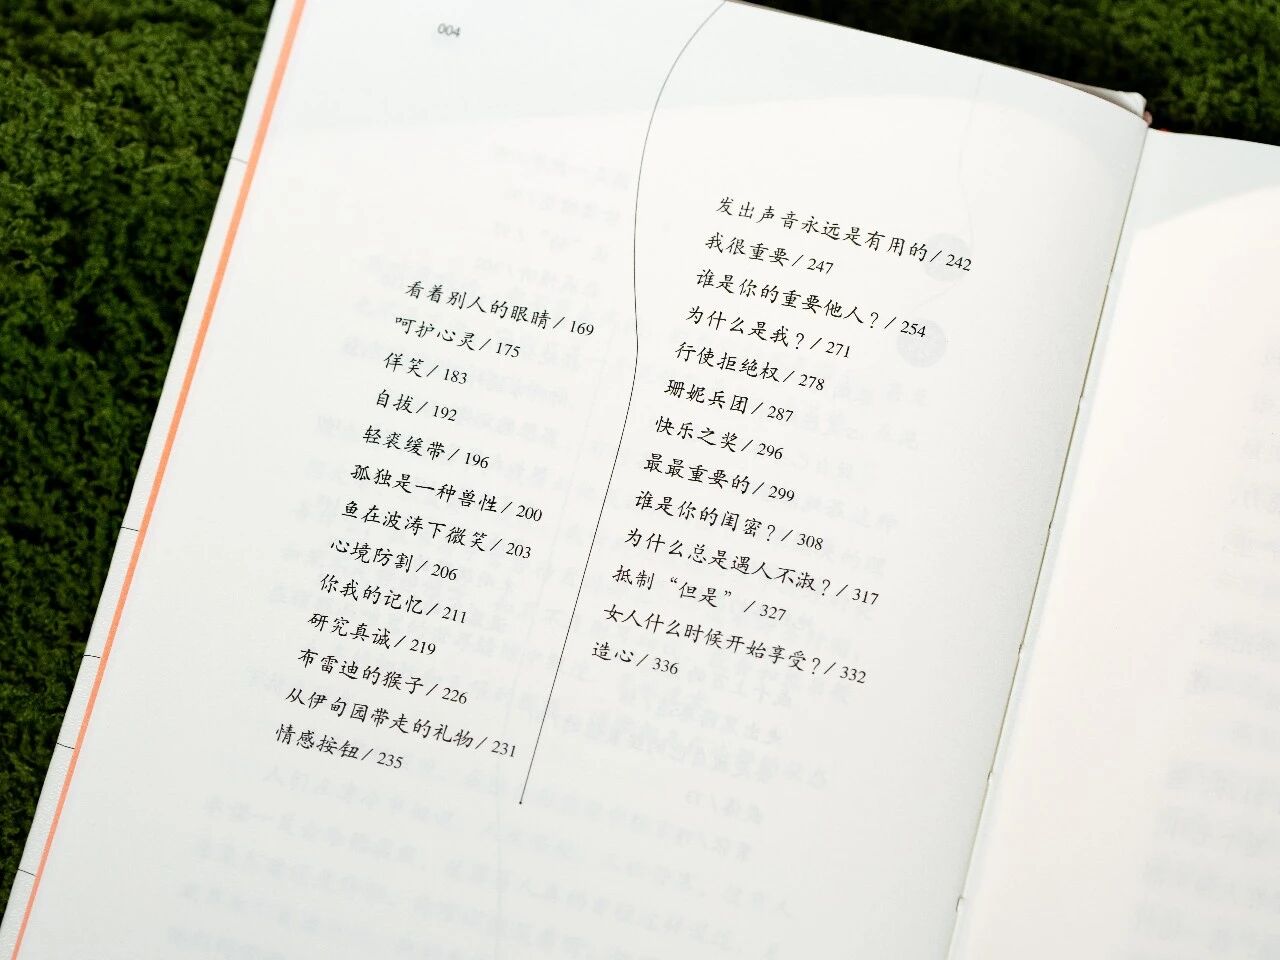 004
看着别人的眼睛/169
呵护心灵/175
佯笑/183
自拔/192
轻裘缓带/196
孤独是一种兽性/200
鱼在波涛下微笑/203
心境防割/206
你我的记忆/211
研究真诚/219
布雷迪的猴子/226
从伊甸园带走的礼物/231
情感按钮/235
发出声音永远是有用的/242
我很重要/247
谁是你的重要他人?/254
为什么是我?/271
行使拒绝权/278
珊妮兵团/287
快乐之奖/296
最最重要的/299
谁是你的闺密?/308
为什么总是遇人不淑?/317
抵制“但是”/327
女人什么时候开始享受?/332
造心/336